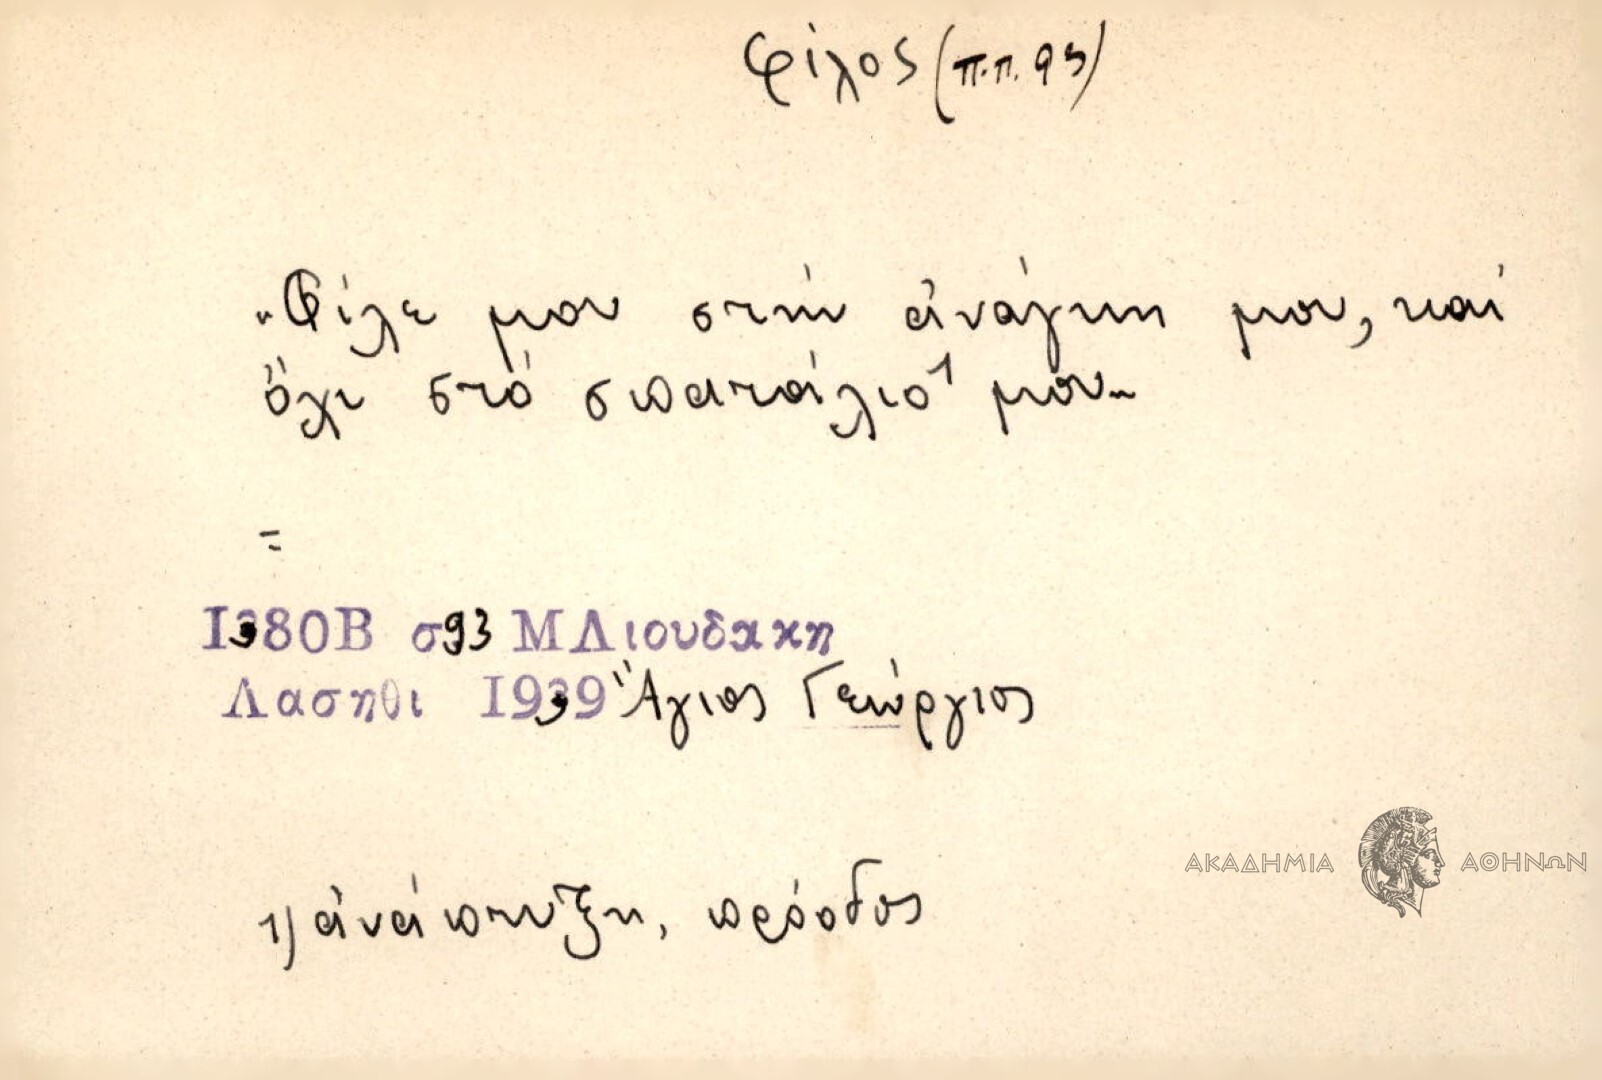 φίλος (π.π. 93)
"Φίλε μου στήν ἀνάγκη μου, καί
ὄχι στό σπατάλιο¹ μου"
=
1380Β σ93 ΜΛιουδακη
Λασηθι 1939 Ἅγιος Γεώργιος
ΑΚΑΔΗΜΙΑ ΑΘΗΝΩΝ
1) ἀνάπτυξη, πρόοδος